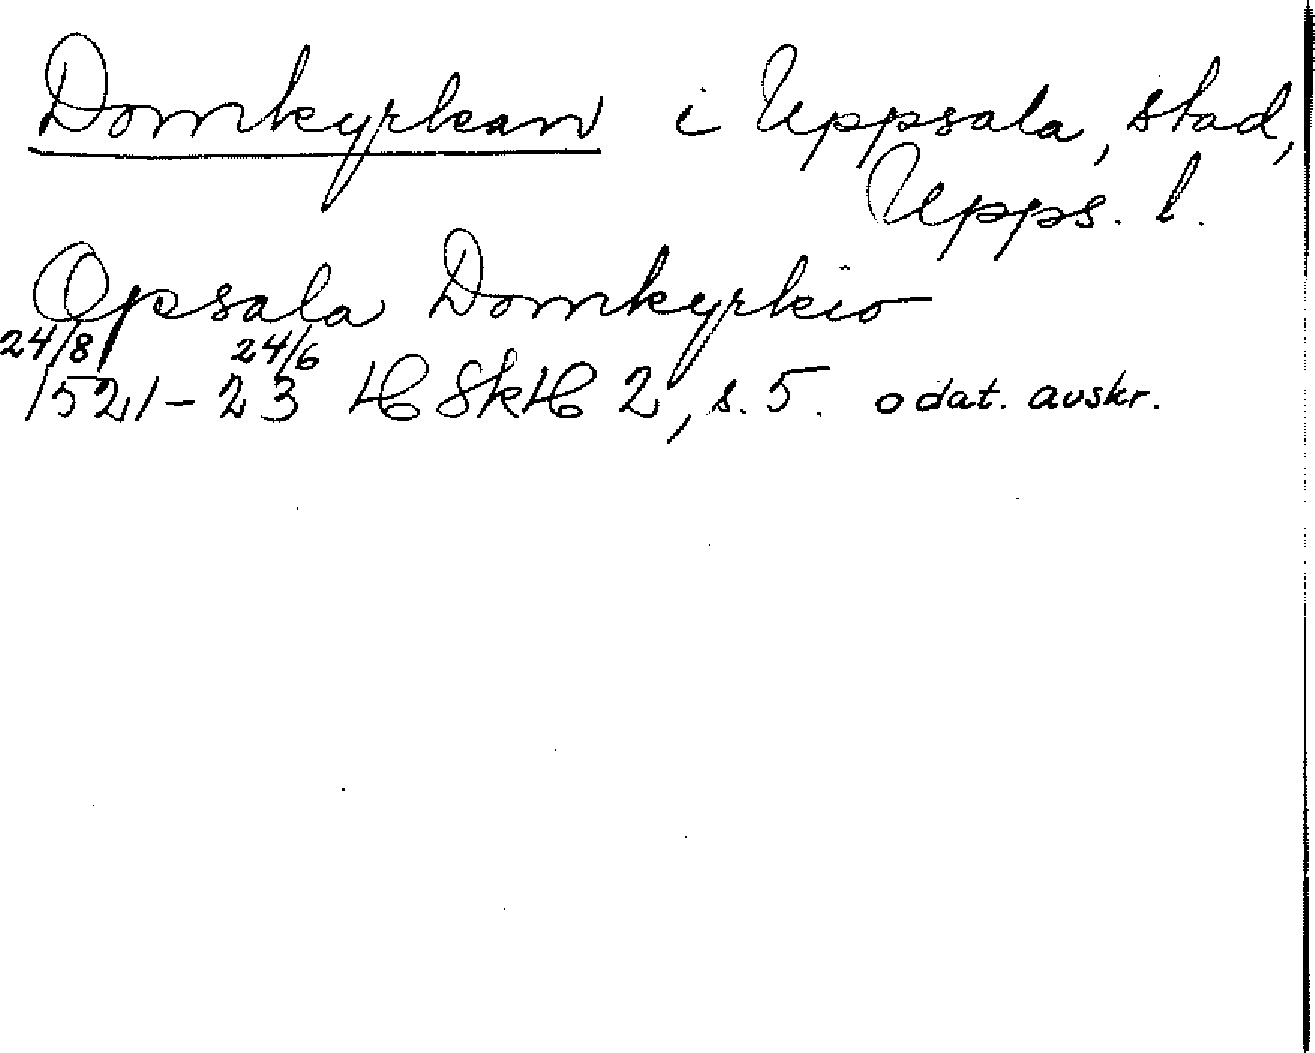 Domkyrkan i Uppsala, stad,
Upps. l.
Opsala Domkyrkio
24/8 24/6
1521-23 HSkH 2, s. 5. odat. avskr.